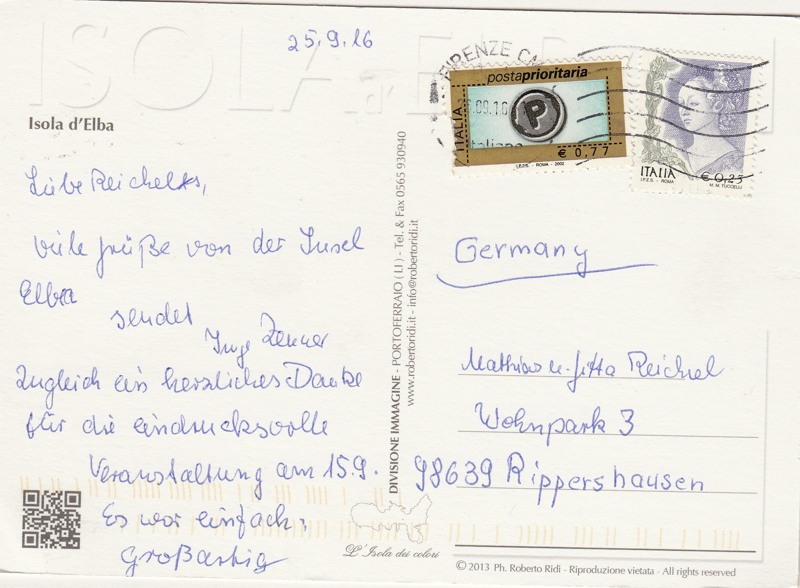 ISOLA d'ELBA
25.9.16
Isola d'Elba
Liebe Reichelts,
viele Grüße von der Insel
Elba
sendet
Inge Zenner
Zugleich ein herzliches Danke
für die eindrucksvolle
Veranstaltung am 15.9.
Es war einfach:
Großartig
DIVISIONE IMMAGINE - PORTOFERRAIO ( LI ) - Tel. & Fax 0565 930940
www.robertoridi.it - info@robertoridi.it
L'Isola dei colori
FIRENZE
.09.16
italiane
postaprioritaria
P
ITALIA
€ 0,77
I.P.Z.S. - ROMA - 2002
ITALIA
€ 0,25
I.P.Z.S. - ROMA
M. M. TUCCELLI
Germany
Mathias u. Jitta Reichel
Wohnpark 3
98639 Rippershausen
© 2013 Ph. Roberto Ridi - Riproduzione vietata - All rights reserved